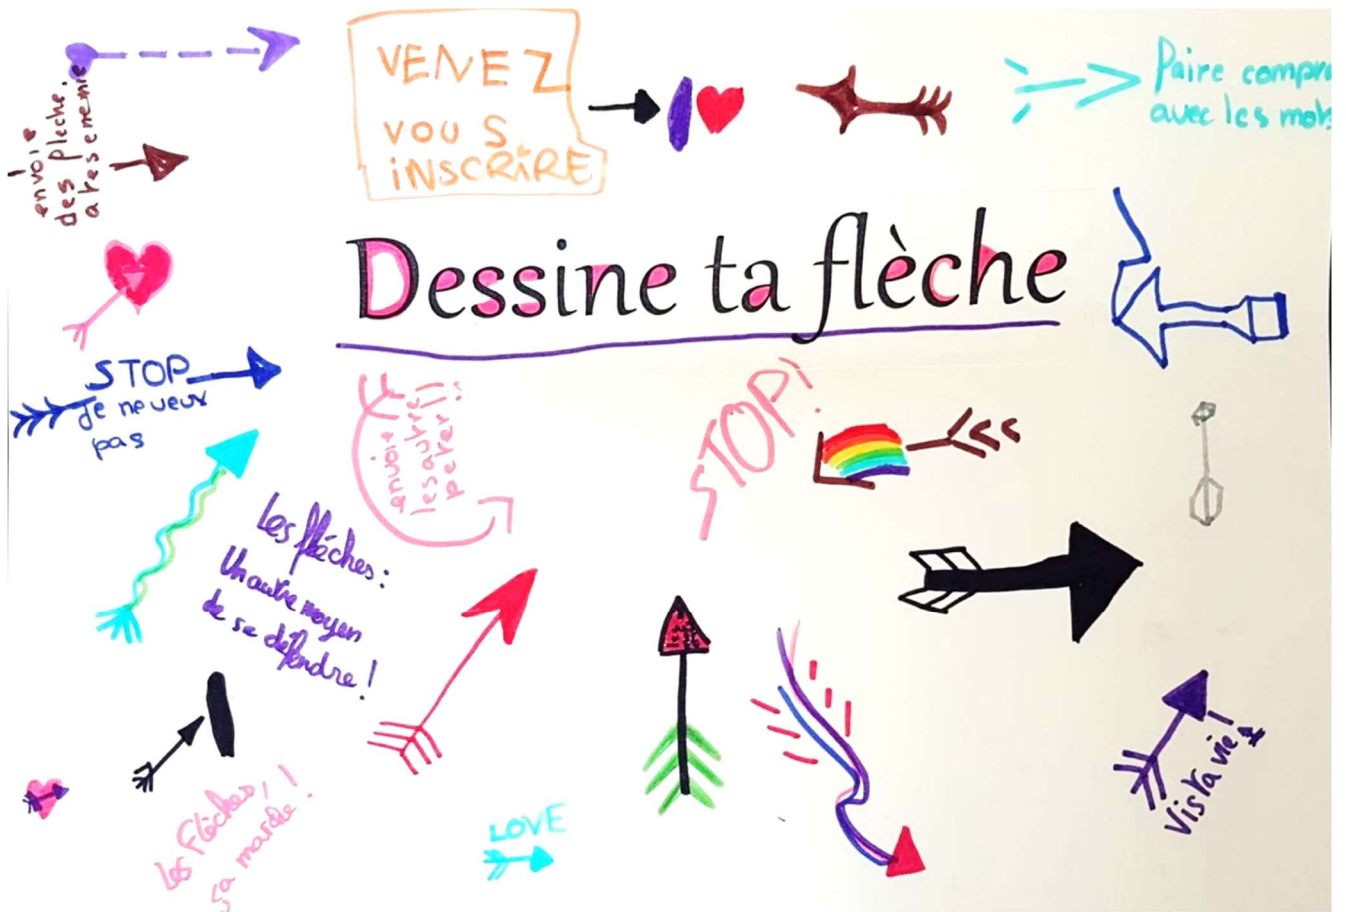 envoie
des flèche.
a tes enemie
VENEZ
VOU S
iNSCRiRE
Paire compr
avec les mots
Dessine ta flèche
STOP
Je ne veux
pas
envoie
les autre
peter !!
STOP!
Les flèches :
Un autre moyen
de se défendre !
Les flèches,
ça marche !
LOVE
Vis ta vie !